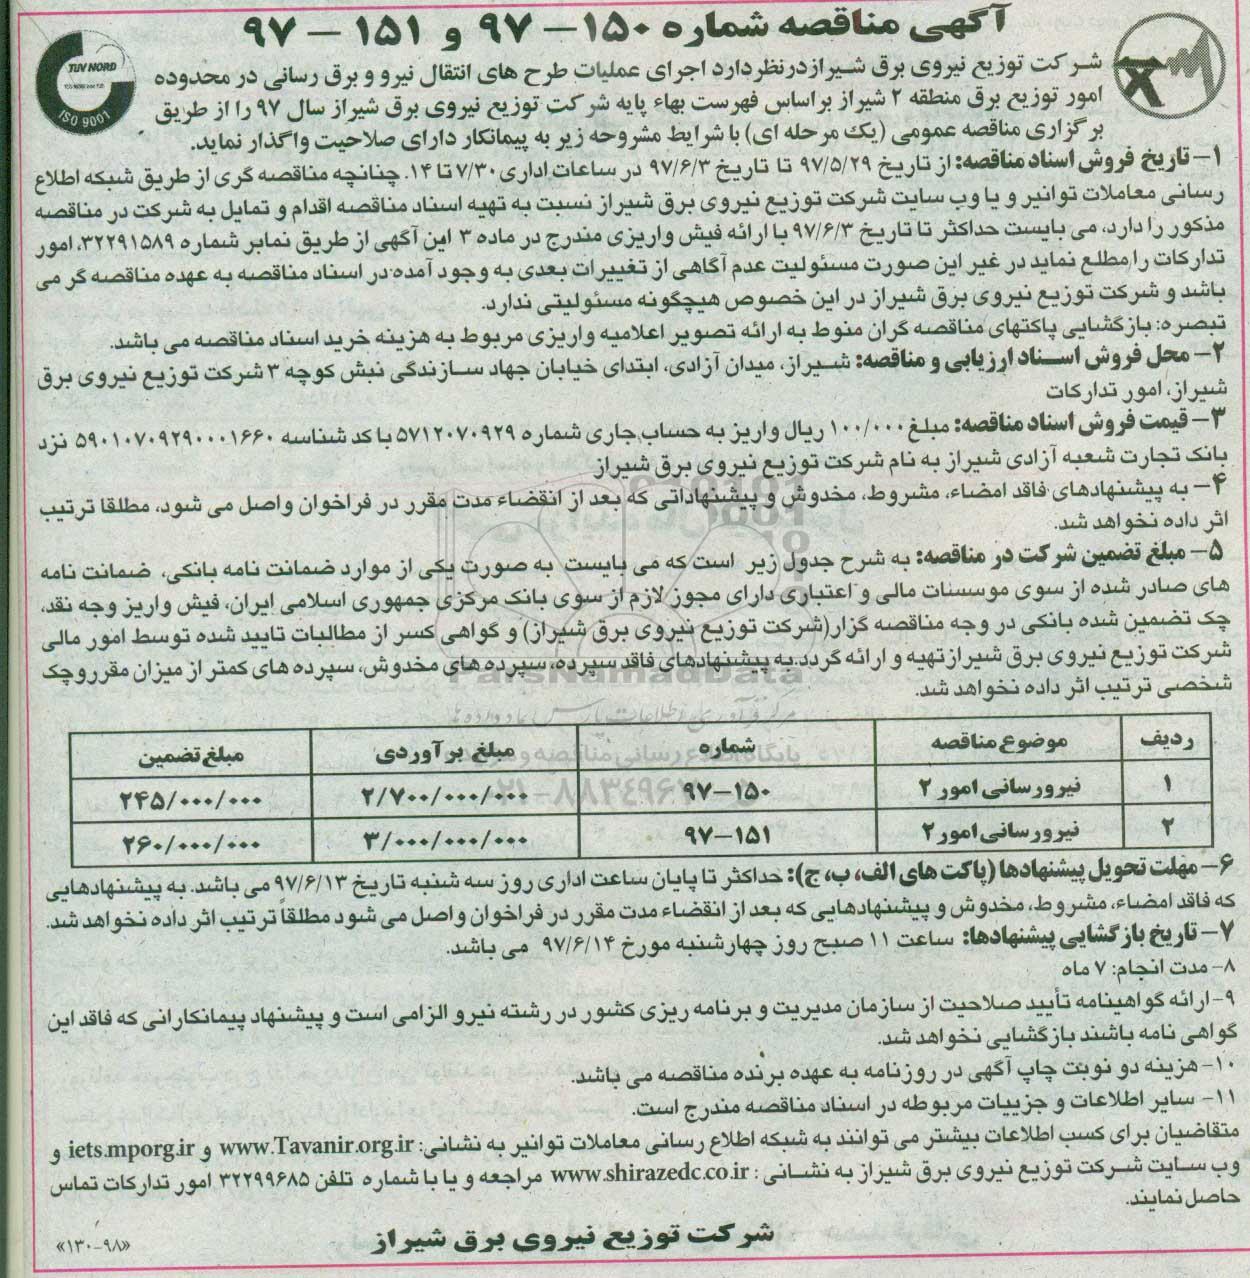 آگهی مناقصه شماره ۱۵۰-۹۷ و ۱۵۱-۹۷
TUV NORD
ISO 9001
شرکت توزیع نیروی برق شیراز درنظر دارد اجرای عملیات طرح های انتقال نیرو و برق رسانی در محدوده
امور توزیع برق منطقه ۲ شیراز بر اساس فهرست بهاء پایه شرکت توزیع نیروی برق شیراز سال ۹۷ را از طریق
برگزاری مناقصه عمومی (یک مرحله ای) با شرایط مشروحه زیر به پیمانکار دارای صلاحیت واگذار نماید.
۱- تاریخ فروش اسناد مناقصه: از تاریخ ۹۷/۵/۲۹ تا تاریخ ۹۷/۶/۳ در ساعات اداری ۷/۳۰ تا ۱۴. چنانچه مناقصه گری از طریق شبکه اطلاع
رسانی معاملات توانیر و یا وب سایت شرکت توزیع نیروی برق شیراز نسبت به تهیه اسناد مناقصه اقدام و تمایل به شرکت در مناقصه
مذکور را دارد، می بایست حداکثر تا تاریخ ۹۷/۶/۳ با ارائه فیش واریزی مندرج در ماده ۳ این آگهی از طریق نمابر شماره ۳۲۲۹۱۵۸۹، امور
تدارکات را مطلع نماید در غیر این صورت مسئولیت عدم آگاهی از تغییرات بعدی به وجود آمده در اسناد مناقصه به عهده مناقصه گر می
باشد و شرکت توزیع نیروی برق شیراز در این خصوص هیچگونه مسئولیتی ندارد.
تبصره: بازگشایی پاکتهای مناقصه گران منوط به ارائه تصویر اعلامیه واریزی مربوط به هزینه خرید اسناد مناقصه می باشد.
۲- محل فروش اسناد ارزیابی و مناقصه: شیراز، میدان آزادی، ابتدای خیابان جهاد سازندگی نبش کوچه ۳ شرکت توزیع نیروی برق
شیراز، امور تدارکات
۳- قیمت فروش اسناد مناقصه: مبلغ ۱۰۰/۰۰۰ ریال واریز به حساب جاری شماره ۵۷۱۲۰۷۰۹۲۹ با کد شناسه ۵۹۰۱۰۷۰۹۲۹۰۰۰۱۶۶۰ نزد
بانک تجارت شعبه آزادی شیراز به نام شرکت توزیع نیروی برق شیراز
۴- به پیشنهادهای فاقد امضاء، مشروط، مخدوش و پیشنهاداتی که بعد از انقضاء مدت مقرر در فراخوان واصل می شود، مطلقا ترتیب
اثر داده نخواهد شد.
۵- مبلغ تضمین شرکت در مناقصه: به شرح جدول زیر است که می بایست به صورت یکی از موارد ضمانت نامه بانکی، ضمانت نامه
های صادر شده از سوی موسسات مالی و اعتباری دارای مجوز لازم از سوی بانک مرکزی جمهوری اسلامی ایران، فیش واریز وجه نقد،
چک تضمین شده بانکی در وجه مناقصه گزار(شرکت توزیع نیروی برق شیراز) و گواهی کسر از مطالبات تایید شده توسط امور مالی
شرکت توزیع نیروی برق شیراز تهیه و ارائه گردد. به پیشنهادهای فاقد سپرده، سپرده های مخدوش، سپرده های کمتر از میزان مقرر و چک
شخصی ترتیب اثر داده نخواهد شد.
ParsNamadData
ردیف موضوع مناقصه شماره مبلغ برآوردی مبلغ تضمین
۱ نیرورسانی امور ۲ ۹۷-۱۵۰ ۲/۷۰۰/۰۰۰/۰۰۰ ۲۴۵/۰۰۰/۰۰۰
۲ نیرورسانی امور ۲ ۹۷-۱۵۱ ۳/۰۰۰/۰۰۰/۰۰۰ ۲۶۰/۰۰۰/۰۰۰
۶- مهلت تحویل پیشنهادها (پاکت های الف، ب، ج): حداکثر تا پایان ساعت اداری روز سه شنبه تاریخ ۹۷/۶/۱۳ می باشد. به پیشنهادهایی
که فاقد امضاء، مشروط، مخدوش و پیشنهادهایی که بعد از انقضاء مدت مقرر در فراخوان واصل می شود مطلقاً ترتیب اثر داده نخواهد شد.
۷- تاریخ بازگشایی پیشنهادها: ساعت ۱۱ صبح روز چهارشنبه مورخ ۹۷/۶/۱۴ می باشد.
۸- مدت انجام: ۷ ماه
۹- ارائه گواهینامه تأیید صلاحیت از سازمان مدیریت و برنامه ریزی کشور در رشته نیرو الزامی است و پیشنهاد پیمانکارانی که فاقد این
گواهی نامه باشند بازگشایی نخواهد شد.
۱۰- هزینه دو نوبت چاپ آگهی در روزنامه به عهده برنده مناقصه می باشد.
۱۱- سایر اطلاعات و جزییات مربوطه در اسناد مناقصه مندرج است.
متقاضیان برای کسب اطلاعات بیشتر می توانند به شبکه اطلاع رسانی معاملات توانیر به نشانی: www.Tavanir.org.ir و iets.mporg.ir و
وب سایت شرکت توزیع نیروی برق شیراز به نشانی: www.shirazedc.co.ir مراجعه و یا با شماره تلفن ۳۲۲۹۹۶۸۵ امور تدارکات تماس
حاصل نمایند.
شرکت توزیع نیروی برق شیراز
«۱۳۰-۹۸»